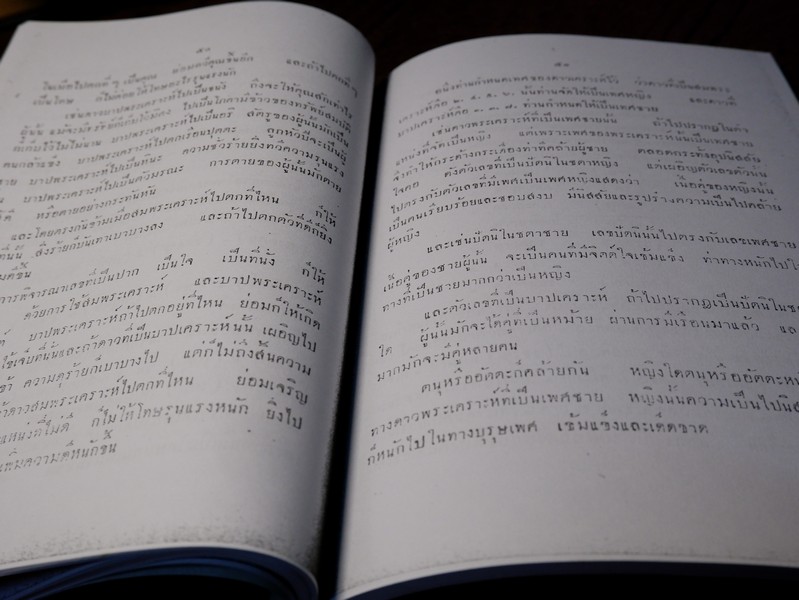 ๕๐
ในเมื่อไปตกที่ ๆ เป็นคุณ ย่อมมีคุณขึ้นอีก และถ้าไปตกที่ ๆ
เป็นโทษ ก็ไม่
เช่นดาวบาปพระเคราะห์ไปเป็นขนัง ถึงจะให้คุณสักเท่าไร
ผู้นั้น ไปเป็นโภคามีข้าวของทรัพย์สมบัติ
บาปพระเคราะห์ไปเป็นอริ ศัตรูของผู้นั้นมักเป็น
คนกล้าแข็ง บาปพระเคราะห์ไปตกเรือนปุตตะ ลูกหัวปีจะเป็นผู้
ชาย บาปพระเคราะห์ไปเป็นหินะ ความชั่วร้ายยิ่งทวีความรุนแรง
บาปพระเคราะห์ไปเป็นตัวมรณะ การตายของผู้นั้นมักตาย
หรือตายอย่างกระทันหัน
และโดยตรงกันข้ามเมื่อสมพระเคราะห์ไปตกที่ไหน ก็ให้
ที่นั้น สิ่งร้ายก็บันเทาเบาบางลง และถ้าไปตกตัวที่ดีก็ยิ่ง
มดีขึ้น
การพิจารณาเลขที่เป็นปาก เป็นใจ เป็นที่นั่ง ก็ให้
ด้วยการใช้สมพระเคราะห์ และบาปพระเคราะห์
บาปพระเคราะห์ถ้าไปตกอยู่ที่ไหน ย่อมก็ให้เกิด
ใช้เจ็บที่นั้นและถ้าดาวที่เป็นบาปเคราะห์นั้น เผอิญไป
ความดุร้ายก็เบาบางไป แต่ก็ไม่ถึงสิ้นความ
ดาวสมพระเคราะห์ไปตกที่ไหน ย่อมเจริญ
แหน่งที่ไม่ดี ก็ไม่ให้โทษรุนแรงหนัก ยิ่งไป
เพิ่มความดีหนักขึ้น
๕๑
อนึ่งท่านกำหนดเพศของดาวเคราะห์ไว้ ว่าดาวที่เป็นสมพระ
เคราะห์คือ ๒. ๔. ๕. ๖. นั้นท่านจัดให้เป็นเพศหญิง และดาวที่
บาปเคราะห์คือ ๑. ๓. ๗. ท่านกำหนดให้เป็นเพศชาย
เช่นดาวพระเคราะห์ที่เป็นเพศชายนั้น ถ้าไปปรากฏในตำ
แหน่งที่จัดเป็นหญิง แต่เพราะเหตุของพระเคราะห์ที่นั้นเป็นเพศชาย
จึงทำให้กระด่างกระเดื่องท่าทีคล้ายผู้ชาย ตลอดกระทั่งอุปนิสสัย
ใจคอ ดังตัวเลขที่เป็นปัตนิในชตาหญิง แต่เผอิญตัวเลขตัวนั้น
ไปตรงกับตัวเลขที่มีเพศเป็นเพศหญิงแสดงว่า เนื้อคู่ของหญิงนั้น
เป็นคนเรียบร้อยและชอบสงบ มีนิสสัยและรูปร่างความเป็นไปคล้าย
ผู้หญิง
และเช่นปัตนิในชตาชาย เลขปัตนินั้นไปตรงกับเลขเพศชาย
เนื้อคู่ของชายผู้นั้น จะเป็นคนที่มีจิตต์ใจเข้มแข็ง ท่าทางหนักไปใน
ทางที่เป็นชายมากกว่าเป็นหญิง
และตัวเลขที่เป็นบาปเคราะห์ ถ้าไปปรากฏเป็นปัตนิในชต
ใด ผู้นั้นมักจะได้คู่ที่เป็นหม้าย ผ่านการมีเรือนมาแล้ว แล
มากมักจะมีคู่หลายคน
ตนุหรืออัตตะก็คล้ายกัน หญิงใดตนุหรืออัตตะหนั
ทางดาวพระเคราะห์ที่เป็นเพศชาย หญิงนั้นความเป็นไปนิส
ก็หนักไปในทางบุรุษเพศ เข้มแข็งและเด็ดขาด